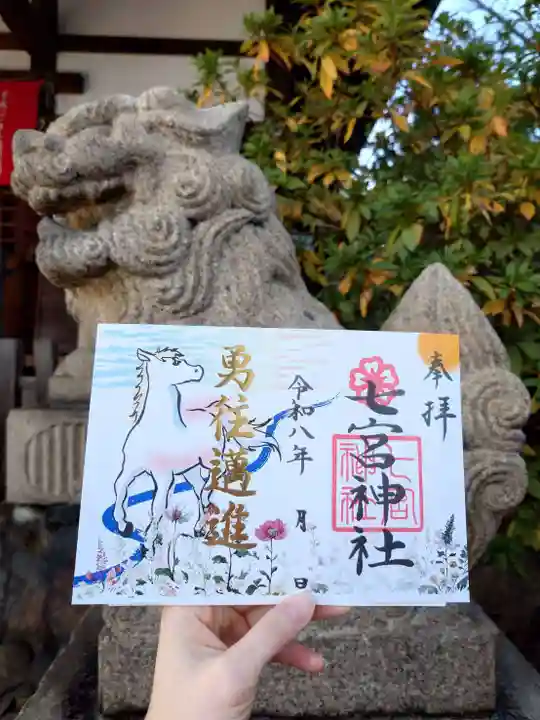 奉拝
七宮神社
七宮
神社
令和八年 月 日
勇往邁進